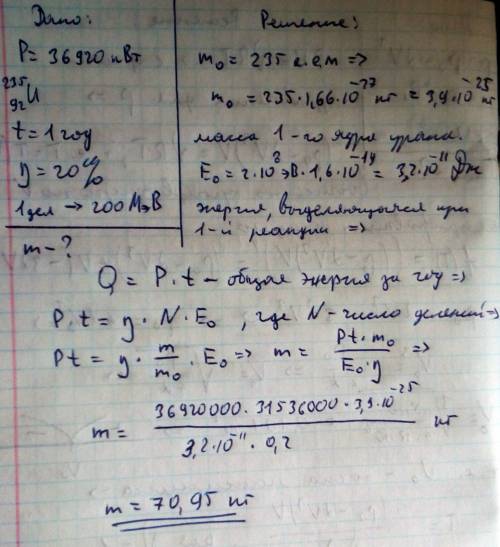 Дано:
P = 36920 кВт
²³⁵₉₂U
t = 1 год
η = 20%
1 дел → 200 МэВ
m - ?
Решение:
m₀ = 235 а.е.м =>
m₀ = 235·1,66·10⁻²⁷ кг = 3,9·10⁻²⁵ кг
масса 1-го ядра урана.
E₀ = 2·10⁸ эВ·1,6·10⁻¹⁹ = 3,2·10⁻¹¹ Дж
энергия, выделяющаяся при
1-й реакции =>
Q = P·t - общая энергия за год =>
P·t = η·N·E₀, где N - число делений =>
Pt = η · m/m₀ · E₀ => m = Pt·m₀/E₀·η =>
m = 36920000·31536000·3,9·10⁻²⁵/3,2·10⁻¹¹·0,2 кг
m = 70,95 кг